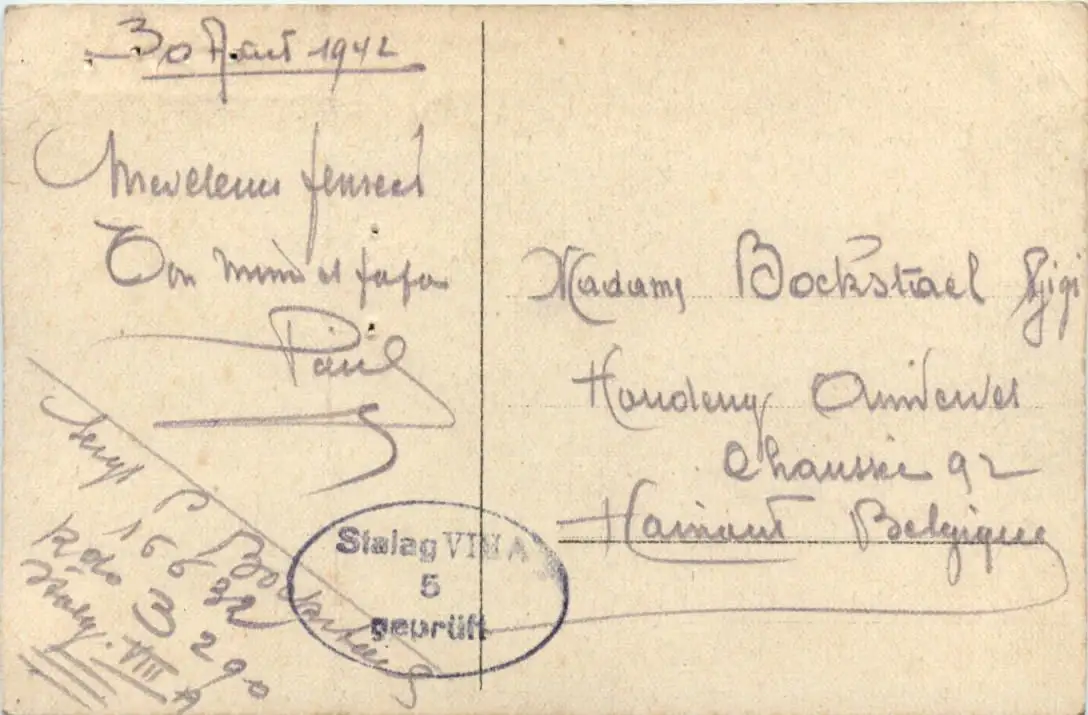 30 Août 1942
Meilleures pensées
Ton mimi et fafa
Paul
Sergt P. Bockstael
16632
Kdo 3290
Stalag VIII A
Stalag VIII A
5
geprüft
Madame Bockstael Gigi
Houdeng
Chaussée 92
Hainaut Belgique